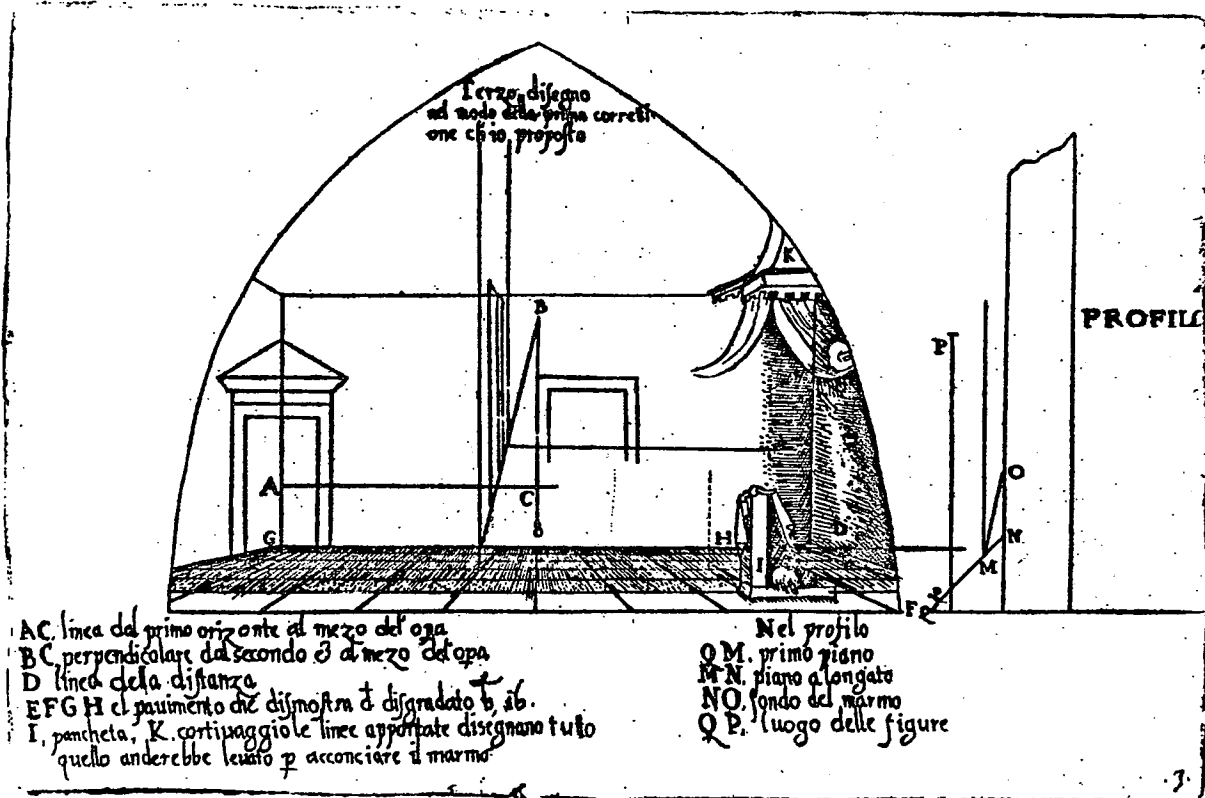 Terzo disegno
ad modo della prima corretti
one ch io proposto
K
B
PROFILI
P
A
C
O
G
H
D
N
I
M
F
Q
AC. linea del primo orizonte al mezo del opa
BC. perpendicolare dal secondo & al mezo del opa
D linea della distanza
EFGH el pauimento che dismostra disgradato b, 16.
I, pancheta, K. cortinaggio le linee apportate disegnano tutto
quello anderebbe leuato p acconciare il marmo
Nel profilo
QM. primo piano
MN. piano alongato
NO. fondo del marmo
QP. luogo delle figure
.3.